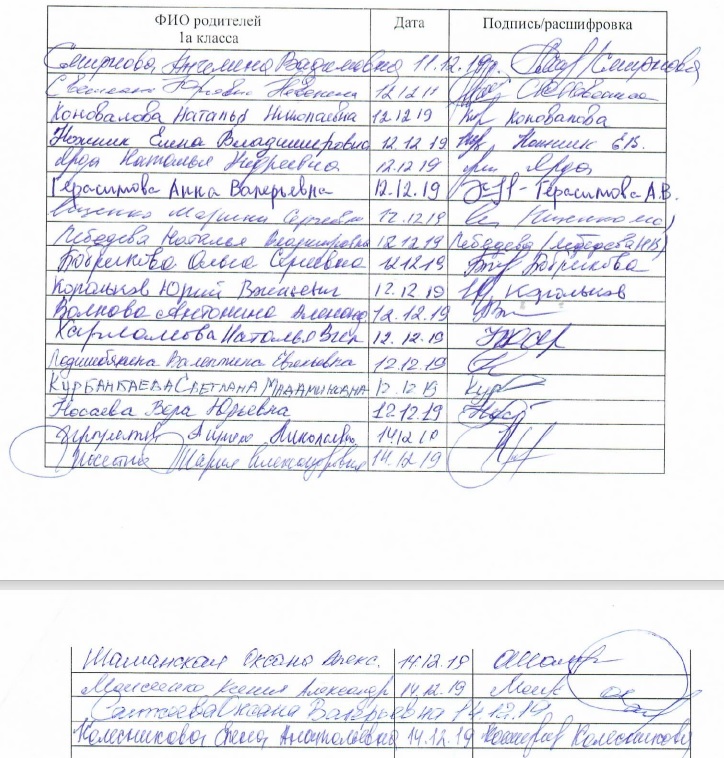 ФИО родителей 1а класса Дата Подпись/расшифровка
Смирнова Ангелина Вадимовна 11.12.19г. Смирнова
12.12.19
Коновалова Наталья Николаевна 12.12.19 Коновалова
Ножник Елена Владимировна 12.12.19 Ножник Е.В.
Ярда Наталья Андреевна 12.12.19 Ярда
Герасимова Анна Валерьевна 12.12.19 Герасимова А.В.
Ищенко Марина Сергеевна 12.12.19 Ищенко
Лебедева Наталья Владимировна 12.12.19 Лебедева (Лебедева Н.В.)
Бобрикова Ольга Сергеевна 12.12.19 Бобрикова
Корольков Юрий 12.12.19 Корольков
Волкова Антонина 12.12.19
Харламова Наталья 12.12.19
Валентина Евгеньевна 12.12.19
Курбанкаева Светлана 12.12.19 Курб
Носаева Вера Юрьевна 12.12.19
Николаевна 14.12.19
Мария Александровна 14.12.19
Шаманская Оксана Алекс. 14.12.19
Моисеенко Ксения Александр 14.12.19
Оксана Валерьевна 14.12.19
Колесникова Елена Анатольевна 14.12.19 Колесникова